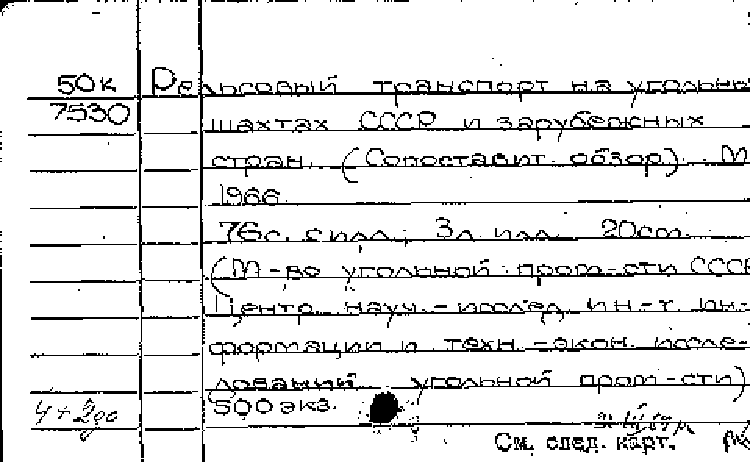 50к Рельсовый транспорт на угольны
7530 шахтах СССР и зарубежных
стран. (Сопоставит. обзор). М
1966
76с. с илл.; 3л илл. 20см.
(М-во угольной пром-сти СССР
Центр. науч.-исслед. ин-т ин-
формации и техн.-экон. иссле-
дований угольной пром-сти)
500 экз.
4+2до
См. след. карт.